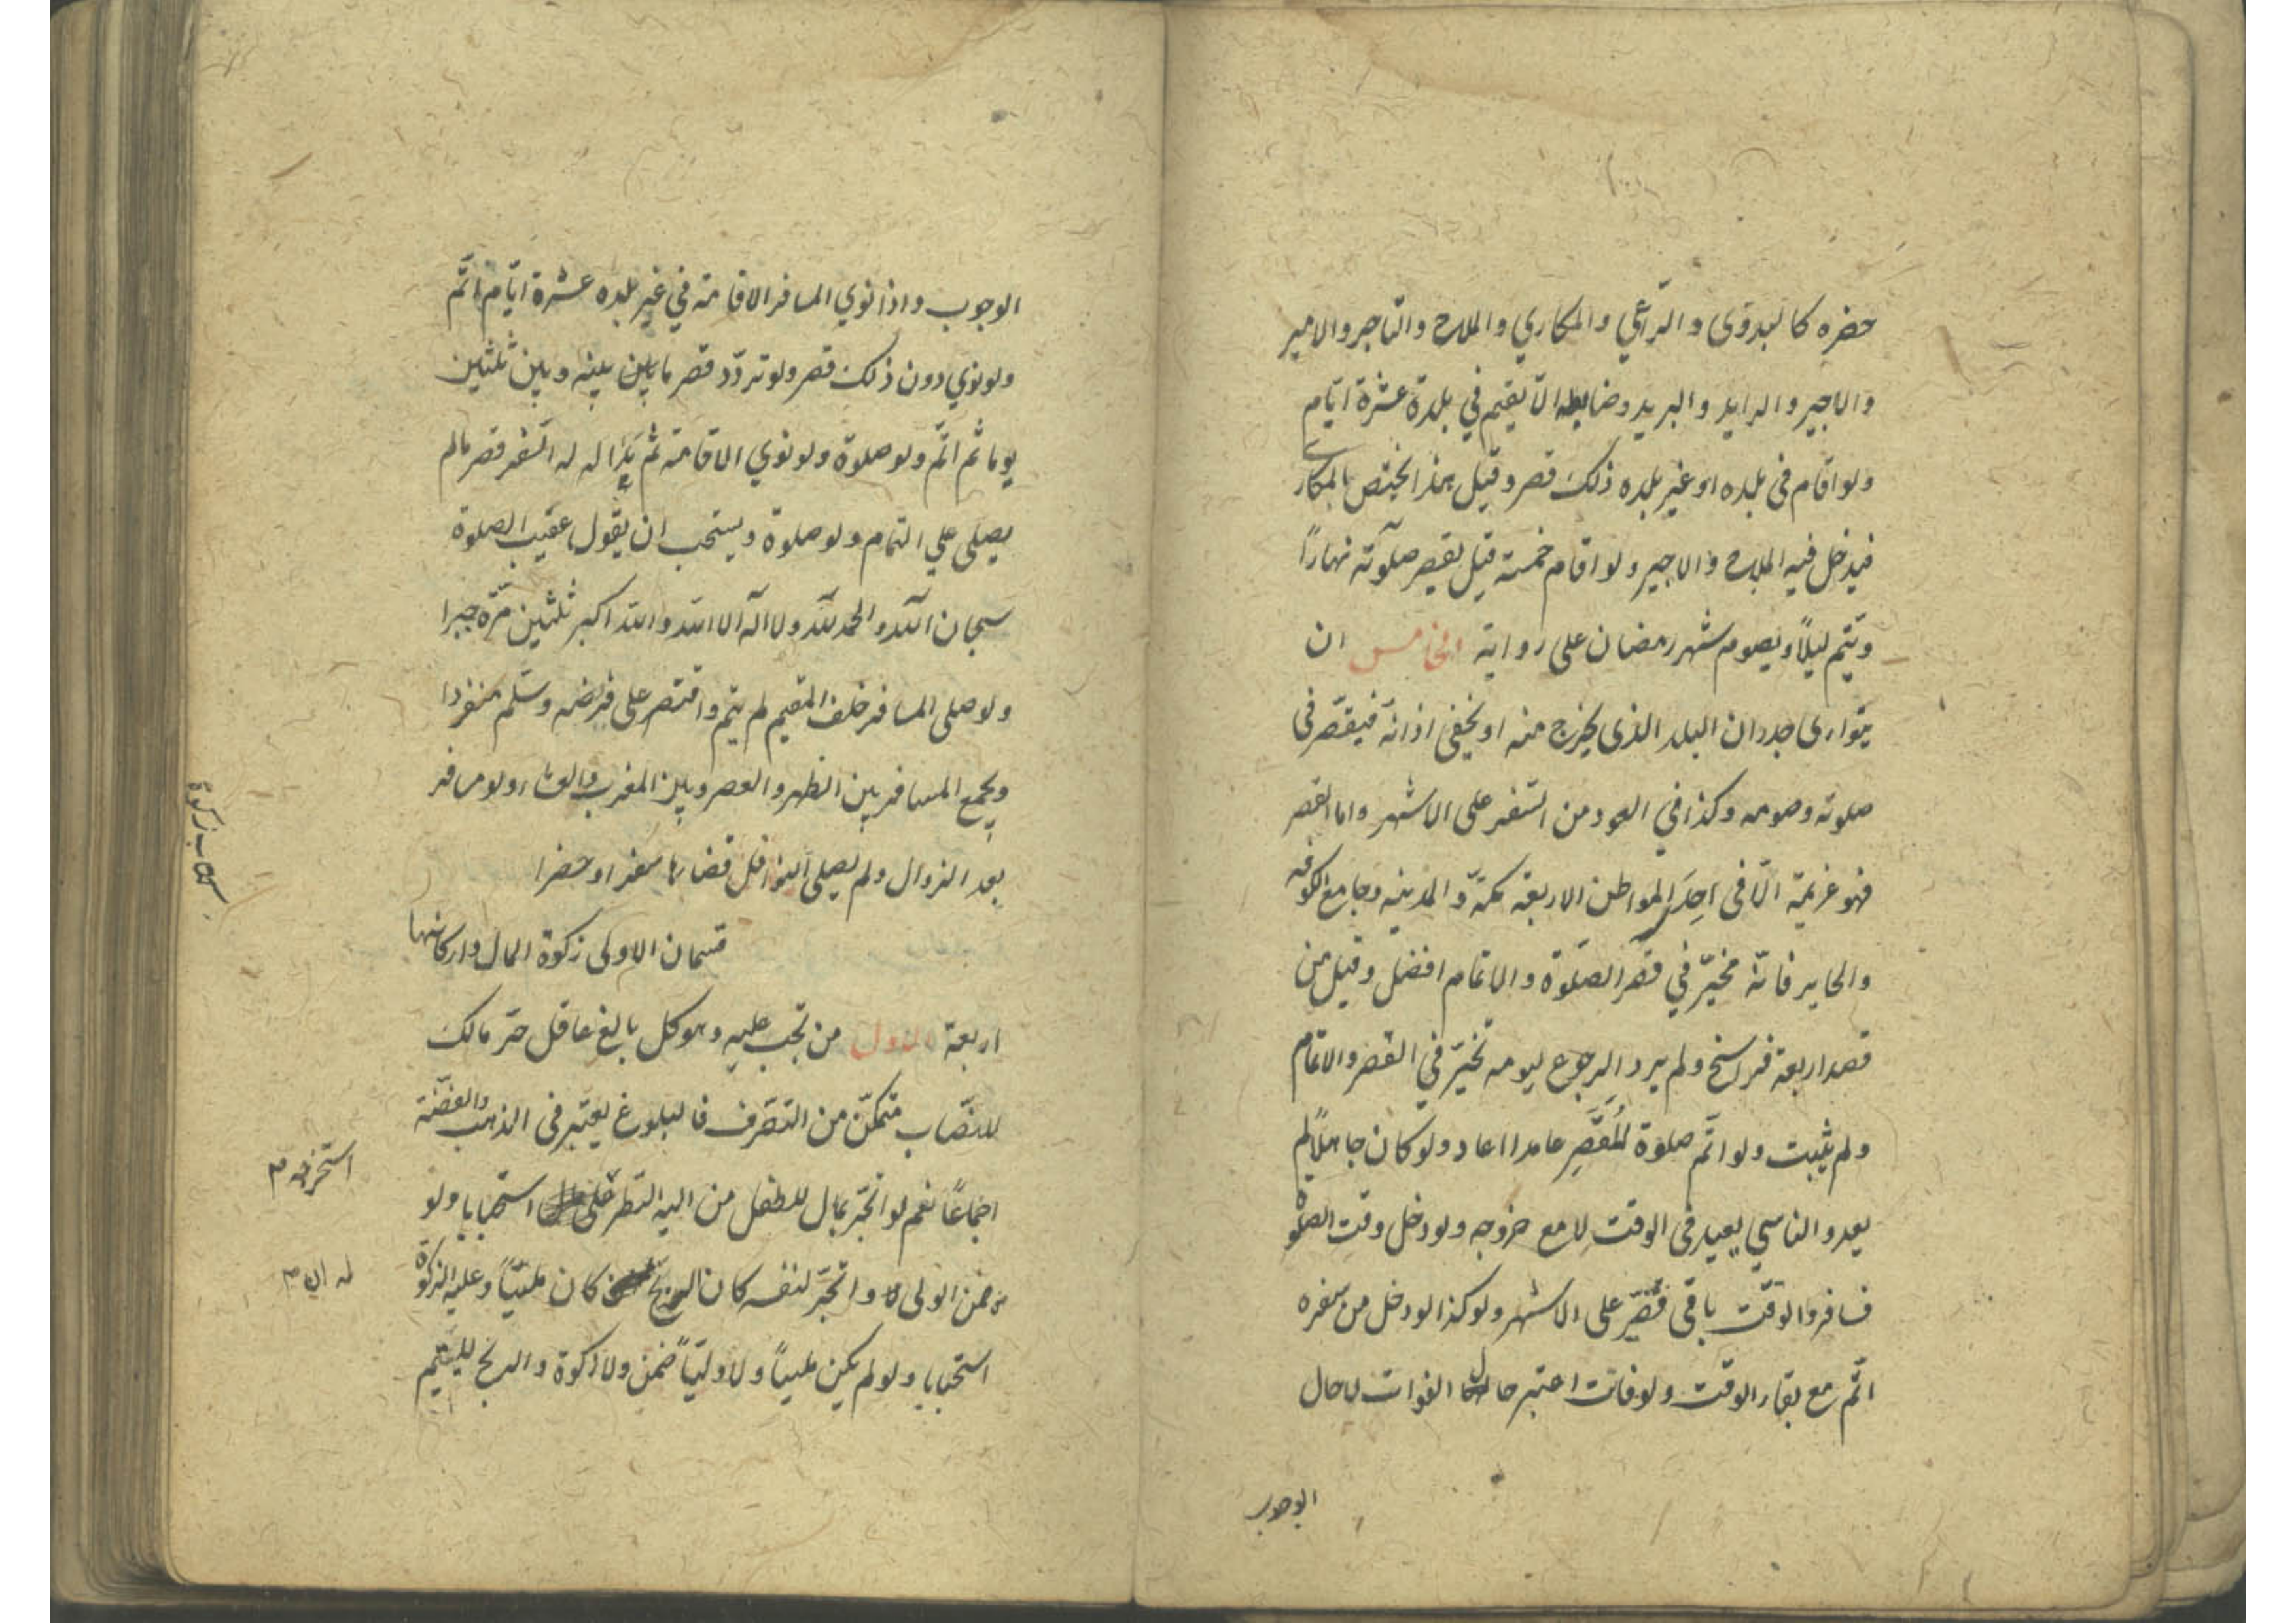 حضره كالبدوى والراعي والمكاري والملاح والتاجر والامير
والاجير والرايد والبريد وضابطه الا يقيم في بلدة عشرة ايام
ولو اقام فى بلده او غير بلده ذلك قصر وقيل هذا يختص بالمكاري
فيدخل فيه الملاح والاجير ولو اقام خمسة قيل يقصر صلوته نهاراً
ويتم ليلاً ويصوم شهر رمضان على رواية الخامس ان
يتوارى جدران البلد الذى يخرج منه او يخفى اذانه فيقصر فى
صلوته وصومه وكذا في العود من السفر على الاشهر واما القصر
فهو عزيمة الا فى احد المواطن الاربعة مكة والمدينه وجامع الكوفه
والحاير فانه مخير في قصر الصلوة والاتمام افضل وقيل من
قصد اربعة فراسخ ولم يرد الرجوع ليومه تخير في القصر والاتمام
ولم يثبت ولو اتم صلوة المقصر عامدا اعاد ولو كان جاهلاً لم
يعد والناسي يعيد فى الوقت لا مع خروجه ولو دخل وقت الصلوة
فسافر والوقت باقى قصر على الاشهر ولو كذا لو دخل من سفره
اتم مع بقاء الوقت ولو فاتت اعتبر حال الفوات لا حال
الوجوب
الوجوب واذا نوي المسافر الاقامة في غير بلده عشرة ايام اتم
ولو نوي دون ذلك قصر ولو تردد قصر ما بين بينه وبين ثلثين
يوما ثم اتم ولو صلوة ولو نوي الاقامة ثم بدا له السفر قصر ما لم
يصلى علي التمام ولو صلوة ويستحب ان يقول عقيب الصلوة
سبحان الله والحمد لله ولا اله الا الله والله اكبر ثلثين مرة جبرا
ولو صلى المسافر خلف المقيم لم يتم واقتصر على فرضه وسلم منفردا
ويجمع المسافر بين الظهر والعصر وبين المغرب والعشاء ولو سافر
بعد الزوال ولم يصلى النوافل قضاها سفرا او حضرا
قسمان الاولى زكوة المال واركانها
كتاب زكوة
اربعة الاول من تجب عليه وهو كل بالغ عاقل حر مالك
للنصاب متمكن من التصرف فالبلوغ يعتبر فى الذهب والفضة
اجماعاً نعم لو اتجر بمال للطفل من اليه النظر على استحبابا ولو
استخرجه م
ضمن الولى واتجر لنفسه كان الربح كان ملياً وعليه الزكوة
له ان م
استحبابا ولو لم يكن ملياً ولا ولياً ضمن ولا زكوة والربح لليتيم